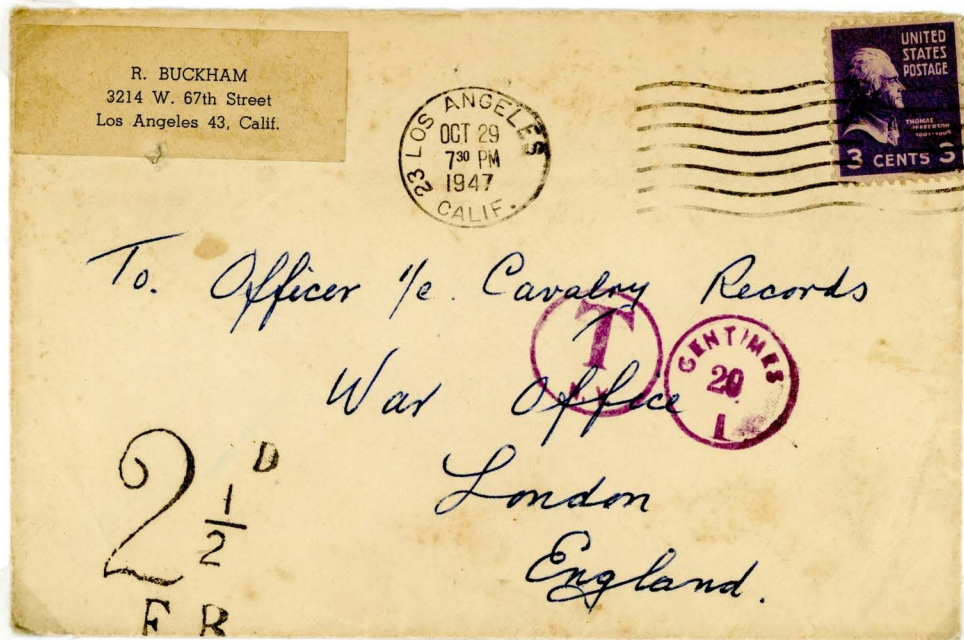 R. BUCKHAM
3214 W. 67th Street
Los Angeles 43, Calif.
23 LOS ANGELES
OCT 29
7 30 PM
1947
CALIF.
UNITED
STATES
POSTAGE
THOMAS
JEFFERSON
1801-1809
3 CENTS 3
To. Officer i/c. Cavalry Records
War Office
London
England.
T
CENTIMES
20
1
2 1/2 D
F B